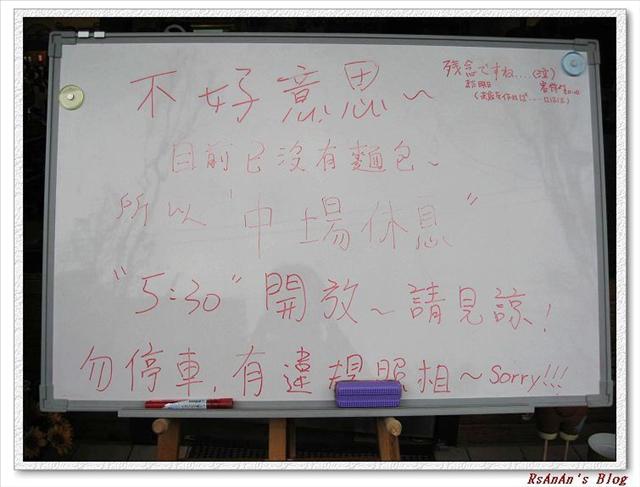 不好意思~
残念ですね....(泣)
目前已沒有麵包~
所以"中場休息"
"5:30"開放~請見諒!
勿停車,有違規照相~Sorry!!!
RsAnAn's Blog